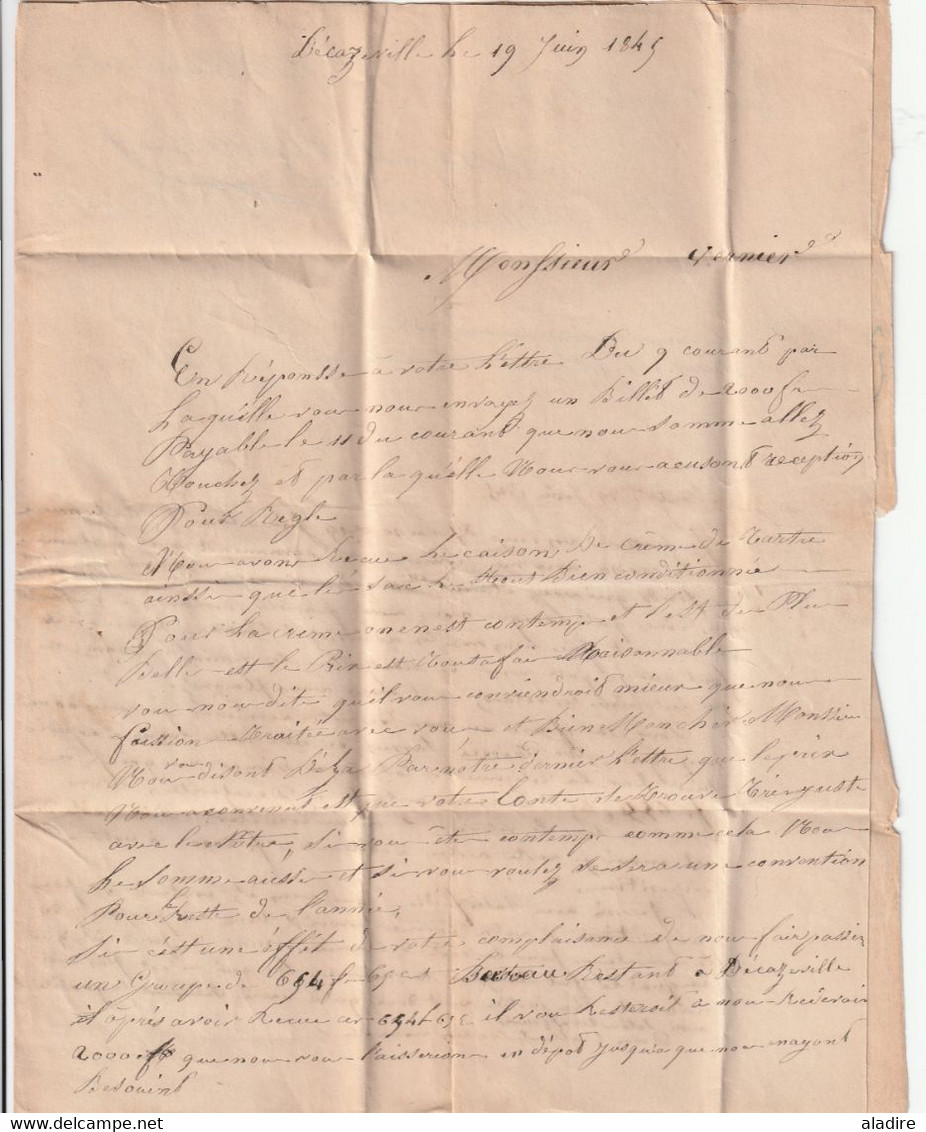 Décazeville le 19 Juin 1845
Monssieur Vernier
En Réponsse à votre Lettre Du 9 courant par
Laquélle vou nou envoyez un Billet de 2000 fr
Payable le 11 du courant que nou somme allez
Touchez et par la quélle Nour vou acusont réception
Pour Regle
Nou avons Recue le caison de crème de Tartre
ainsse que lé sac le tout Bien conditionnée
Pour La crème on en est contemp et Dest de Plu
Belle est le Prix est Toutafai Raisonnable
vou nou dite quél vou conviendroit mieux que nou
faission traitée avec vou et Bien Moncher Monsieu
Nou vou disont Déja Par notre dernier Lettre que le prix
Nou a convenut est que votre Conte se trouve Trèrjuste
avec le Nôtre, si vou ête contemp comme cela Nou
Le somme aussi et si vou voulez se sera une convention
Pour le Reste de l'année,
Si c'ést une éffet de votre complaisance de nou fair passer
un Groupe de 654 f 65 c Bureau Restant à Décazeville
et après avoir Recue ce 654 f 65 c il vou Resteroit à nou Redevoir
2000 ff que nou vou laisserion en dépot jusqua que nou enayont
Besouint
aladire